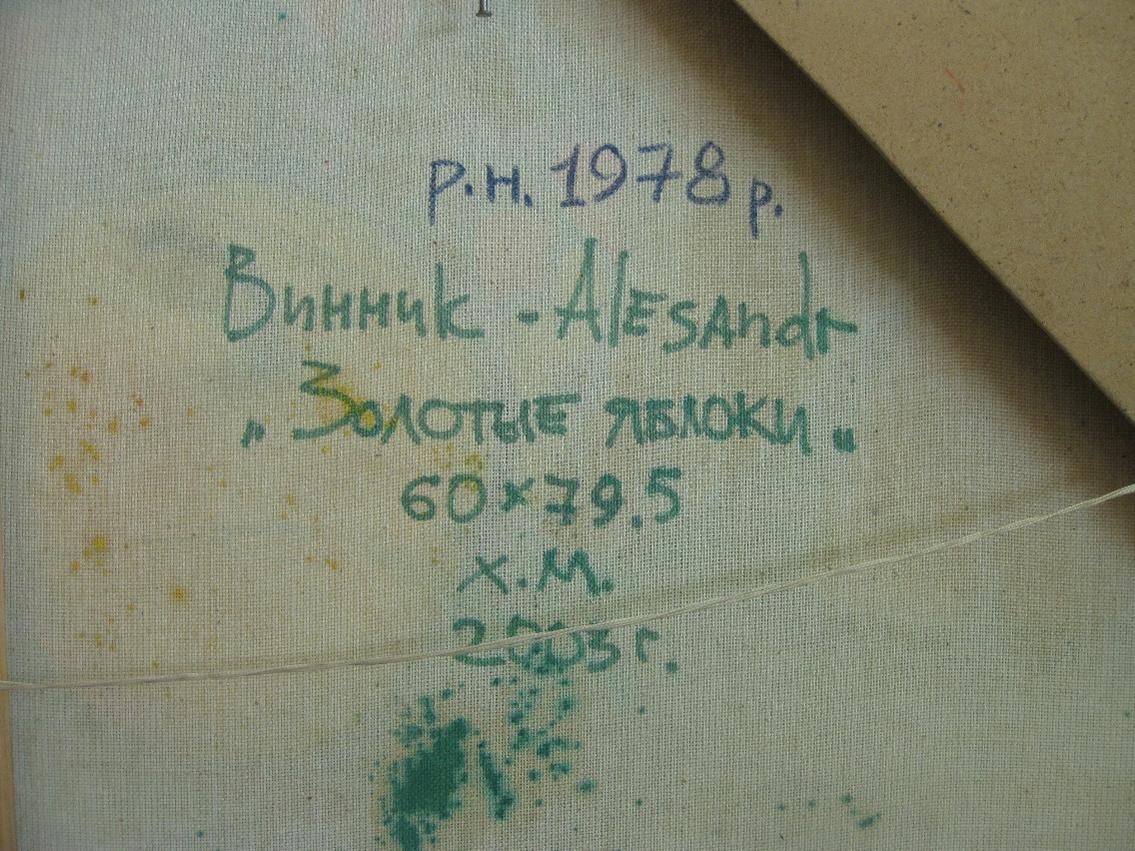 р.н. 1978 р.
Винник - Alesandr
„Золотые яблоки"
60×79.5
х.м.
2003 г.